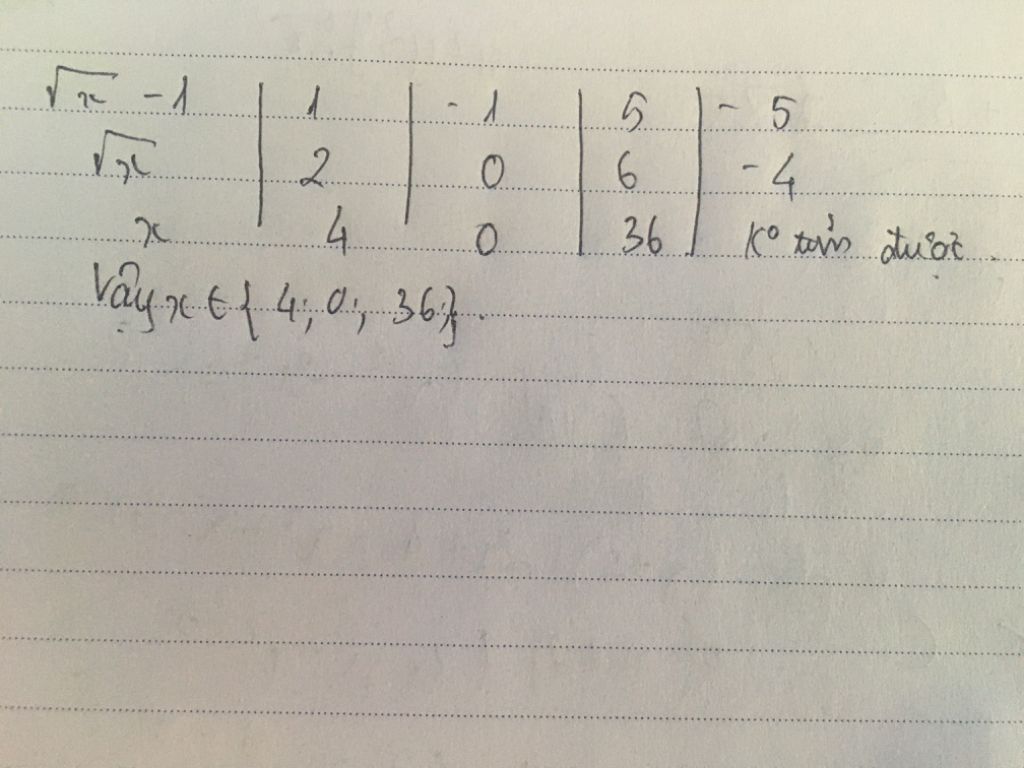 √x - 1 | 1 | - 1 | 5 | - 5
√x | 2 | 0 | 6 | - 4
x | 4 | 0 | 36 | K° được.
Vậy x ∈ { 4; 0; 36;}.